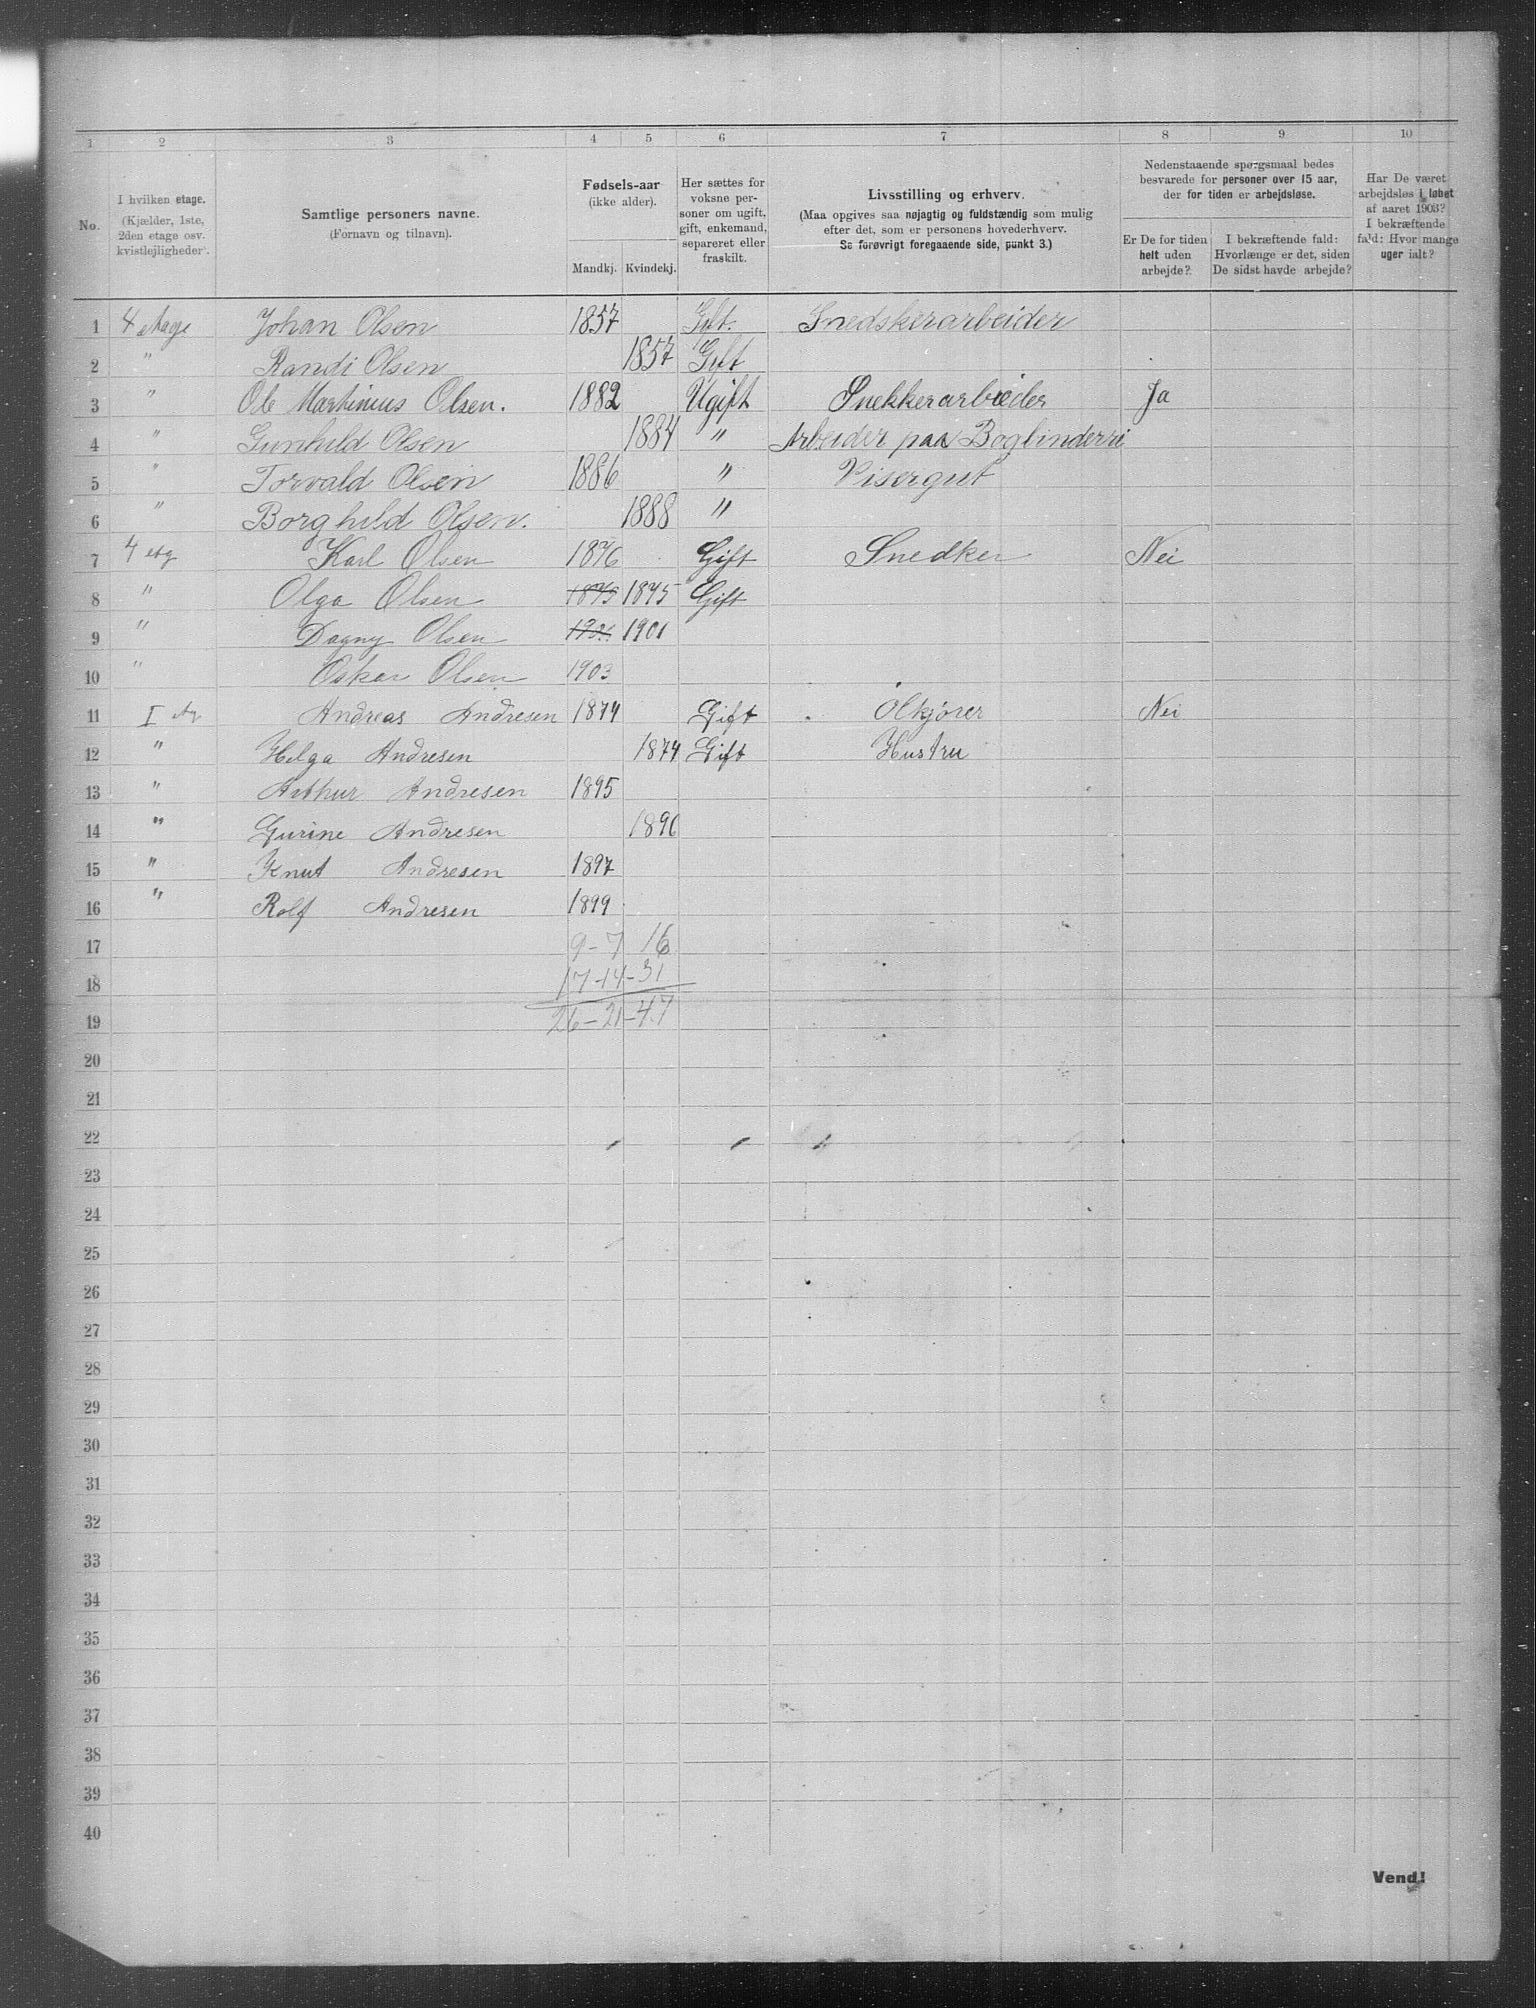 1 2 3 4 5 6 7 8 9 10
No.
I hvilken etage.
(Kjælder, 1ste,
2den etage osv.
kvistlejligheder).
Samtlige personers navne.
(Fornavn og tilnavn).
Fødsels-aar
(ikke alder).
Mandkj. Kvindekj.
Her sættes for
voksne per-
soner om ugift,
gift, enkemand,
separeret eller
fraskilt.
Livsstilling og erhverv.
(Maa opgives saa nøjagtig og fuldstændig som mulig
efter det, som er personens hovederhverv.
Se forøvrigt foregaaende side, punkt 3.)
Nedenstaaende spørgsmaal bedes
besvarede for personer over 15 aar,
der for tiden er arbejdsløse.
Er De for tiden
helt uden
arbejde?
I bekræftende fald:
Hvorlænge er det, siden
De sidst havde arbejde?
Har De været
arbejdsløs i løbet
af aaret 1903?
I bekræftende
fald: Hvor mange
uger ialt?
1 4 etage Johan Olsen 1857 Gift. Snedskerarbeider
2 " Randi Olsen 1857 Gift
3 " Ole Martinius Olsen. 1882 Ugift Snekkerarbeider Ja
4 " Gunhild Olsen 1884 " Arbeider paa Bogbinderri
5 " Torvald Olsen 1886 " Visergut
6 " Borghild Olsen. 1888 "
7 4 etg Karl Olsen 1876 Gift Snedker Nei
8 " Olga Olsen 1875 1875 Gift
9 " Dagny Olsen 1901 1901
10 " Oskar Olsen 1903
11 I etg Andreas Andresen 1874 Gift Ølkjører Nei
12 " Helga Andresen 1874 Gift Hustru
13 " Arthur Andresen 1895
14 " Gurine Andresen 1896
15 " Knut Andresen 1897
16 " Rolf Andresen 1899
17 9-7 16
18 17-14-31
19 26-21-47
20
21
22
23
24
25
26
27
28
29
30
31
32
33
34
35
36
37
38
39
40
Vend!